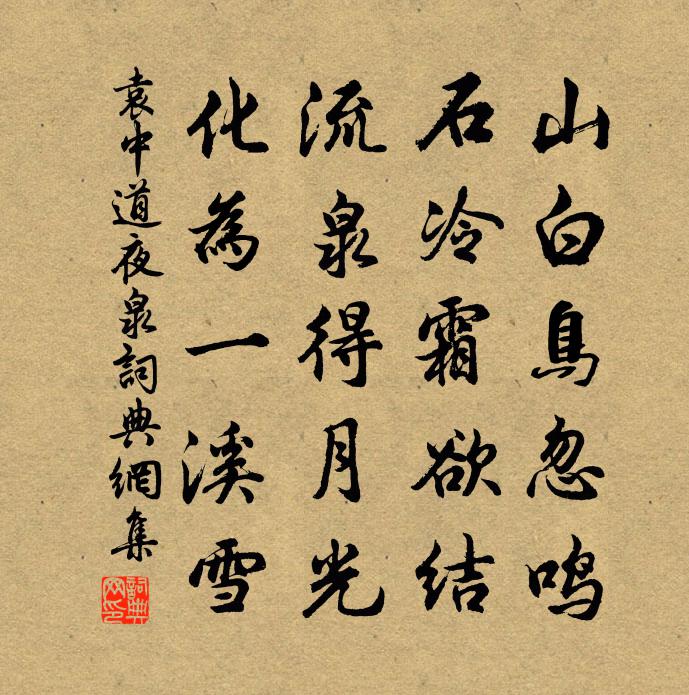 山白鳥忽鳴
石冷霜欲結
流泉得月光
化為一溪雪
袁中道夜泉詞典網集
詞典网印